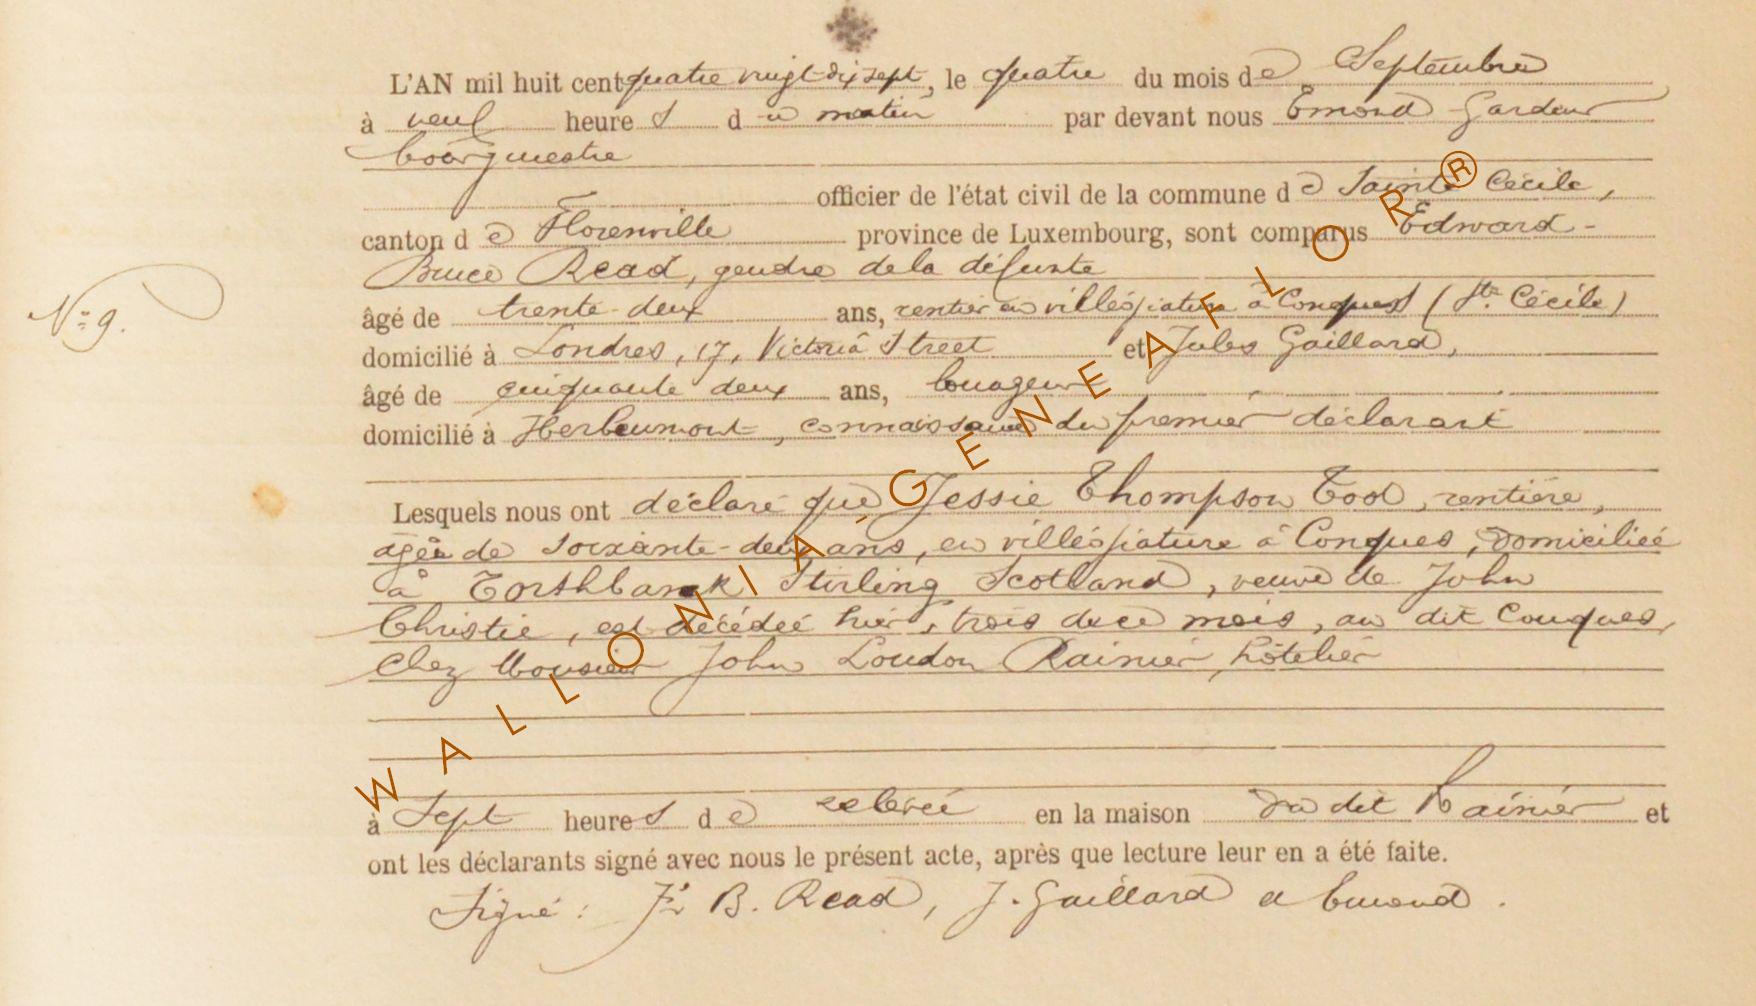 L'AN mil huit cent quatre vingt-dix sept, le quatre du mois de Septembre
à neuf heures du matin par devant nous Emond Gardeur
bourgmestre
officier de l'état civil de la commune de Sainte Cécile,
canton de Florenville province de Luxembourg, sont comparus Edward-
Bruce Read, gendre de la défunte
N° 9.
âgé de trente-deux ans, rentier en villégiature à Conques (Ste Cécile)
domicilié à Londres, 17, Victoria Street et Jules Gaillard,
âgé de cinquante deux ans, louageur
domicilié à Herbeumont, connaissance du premier déclarant
Lesquels nous ont déclaré que Jessie Thompson Tod, rentière,
agée de soixante-deux ans, en villégiature à Conques, domiciliée
à Stirling Scotland, veuve de John
Christie, est décédée hier, trois de ce mois, au dit Conques,
chez Monsieur John Loudon Rainier, hôtelier
à Sept heures de relevée en la maison du dit Rainier et
ont les déclarants signé avec nous le présent acte, après que lecture leur en a été faite.
Signé : B. Read, J. Gaillard et Emond.
WALLONIA-GENEAFLOR®